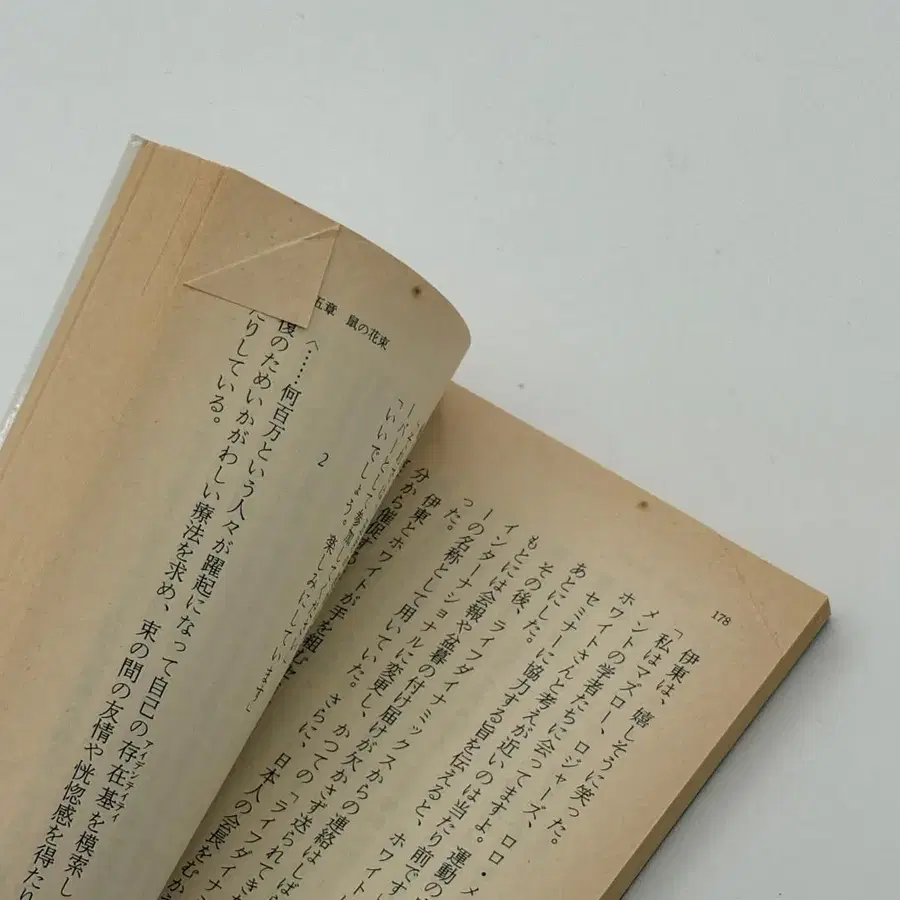 178
伊東は、嬉しそうに笑った。
「私はマズロー、ロジャーズ、ロロ・メ
メントの学者たちに会ってますよ。運動の
ホワイトさんと考えが近いのは当たり前です
セミナーに協力する旨を伝えると、ホワイ
あとにした。
その後、ライフダイナミックスからの連絡はしばら
もとには会報や盆暮の付け届けが欠かさず送られてき
インターナショナルに変更し、かつての「ライフダイナ
ーの名称として用いていた。さらに、日本人の会長をむか
った。
伊東とホワイトが手を組む
分から催促する
五章 鼠の花束
「いいでしょう。楽しみにしていますし
2
〈……何百万という人々が躍起になって自己の存在基アイデンティティを模索し
復のためいかがわしい療法を求め、束の間の友情や恍惚感を得たり
たりしている。